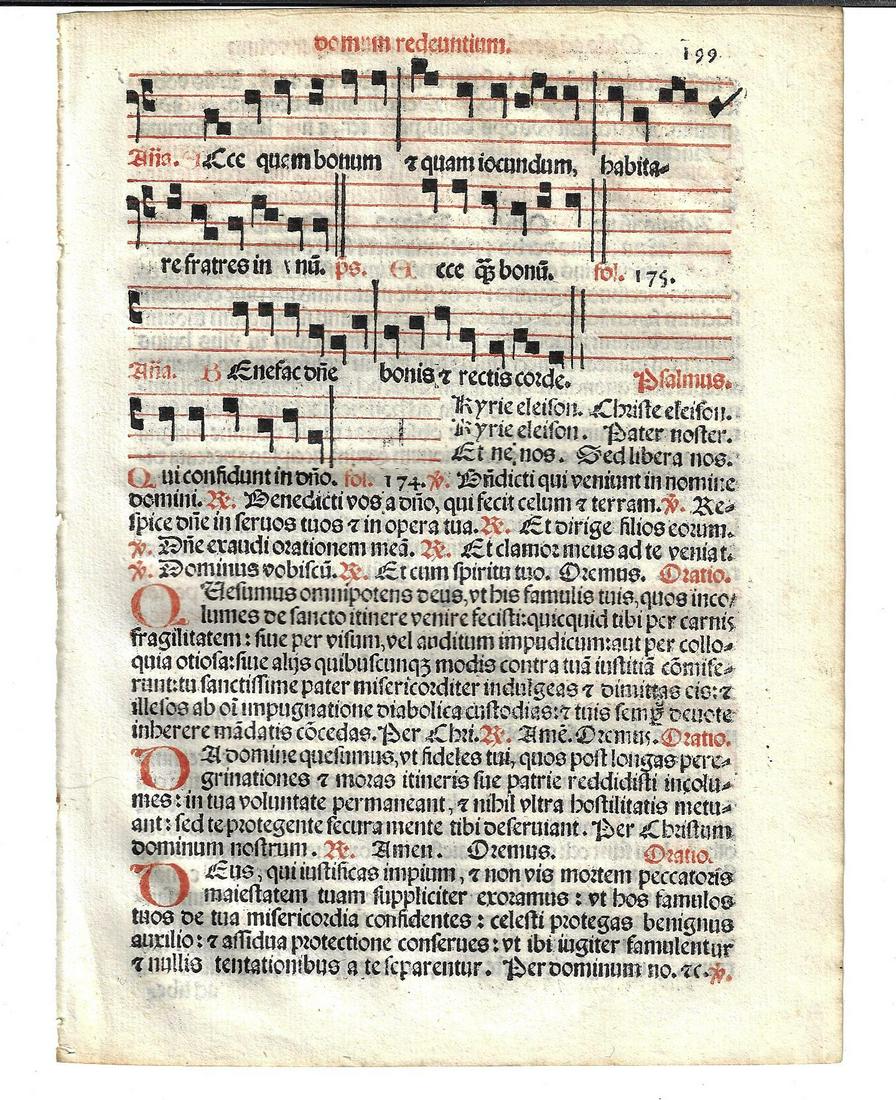 domum redeuntium.
199
Aña. ECce quem bonum ⁊ quam iocundum, habita⸗
re fratres in vnū. ps. Ecce q̄ȝ bonū. fol. 175.
Aña. BEnefac dñe bonis ⁊ rectis corde. Psalmus.
Kyrie eleison. Christe eleison.
Kyrie eleison. Pater noster.
Et ne nos. Sed libera nos.
Qui confidunt in dño. fol. 174. ℣. Bñdicti qui veniunt in nomine
domini. ℞. Benedicti vos a dño, qui fecit celum ⁊ terram. ℣. Re⸗
spice dñe in seruos tuos ⁊ in opera tua. ℞. Et dirige filios eorum.
℣. Dñe exaudi orationem meā. ℞. Et clamor meus ad te veniat.
℣. Dominus vobiscū. ℞. Et cum spiritu tuo. Oremus. Oratio.
QUesumus omnipotens deus, vt his famulis tuis, quos inco/
lumes de sancto itinere venire fecisti: quicquid tibi per carnis
fragilitatem: siue per visum, vel auditum impudicum: aut per collo⸗
quia otiosa: siue alijs quibuscunqȝ modis contra tuā iustitiā cōmise⸗
runt: tu sanctissime pater misericorditer indulgeas ⁊ dimittas eis: ⁊
illesos ab oī impugnatione diabolica custodias: ⁊ tuis semꝑ deuote
inherere mādatis cōcedas. Per Chri. ℞. Amē. Oremus. Oratio.
DA domine quesumus, vt fideles tui, quos post longas pere⸗
grinationes ⁊ moras itineris sue patrie reddidisti incolu⸗
mes: in tua voluntate permaneant, ⁊ nihil vltra hostilitatis metu⸗
ant: sed te protegente secura mente tibi deseruiant. Per Christum
dominum nostrum. ℞. Amen. Oremus. Oratio.
DEus, qui iustificas impium, ⁊ non vis mortem peccatoris
maiestatem tuam suppliciter exoramus: vt hos famulos
tuos de tua misericordia confidentes: celesti protegas benignus
auxilio: ⁊ assidua protectione conserues: vt ibi iugiter famulentur
⁊ nullis tentationibus a te separentur. Per dominum no. ⁊c. ℣.